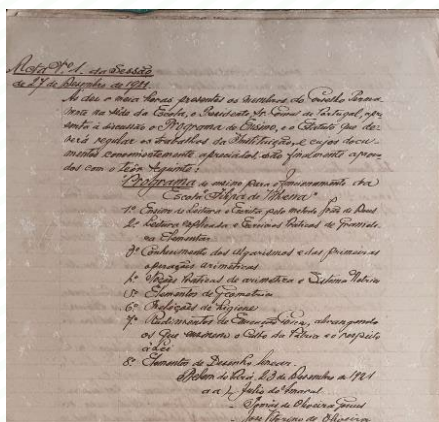 Acta Nº 1. da Sessão
de 27 de Dezembro de 1921
As dez e meia horas presentes os membros do Conselho Perma
nente na séde da Escola, o Presidente Sr. Gomes de Portugal, apre
senta á discussão o Programa de Ensino, e o Estatuto que de
verá regular os trabalhos da Instituição, e cujos docu
mentos convenientemente apreciados são finalmente aprova
dos com o teôr seguinte:
Programa de ensino para o funcionamento da
Escola "Filipa de Vilhena"
1º Ensino de Leitura e Escrita pelo metodo João de Deus
2º Leitura explicada e Exercicios Praticos de Gramati
ca Elementar
3º Conhecimento dos algarismos e das primeiras
operações arimeticas
4º Noções Praticas de arimetica e Sistema Metrico
5º Elementos de Geometria
6º Noções de Higiene
7º Rudimentos de Educação Civica, abrangendo
os que ensinem o Culto da Patria e o respeito
á Lei
8º Elementos de Desenho linear.
Belem do Pará, 23 de Dezembro de 1921
a a) Julio do Amaral
- Tomás de Oliveira
- José Vitorino de Oliveira